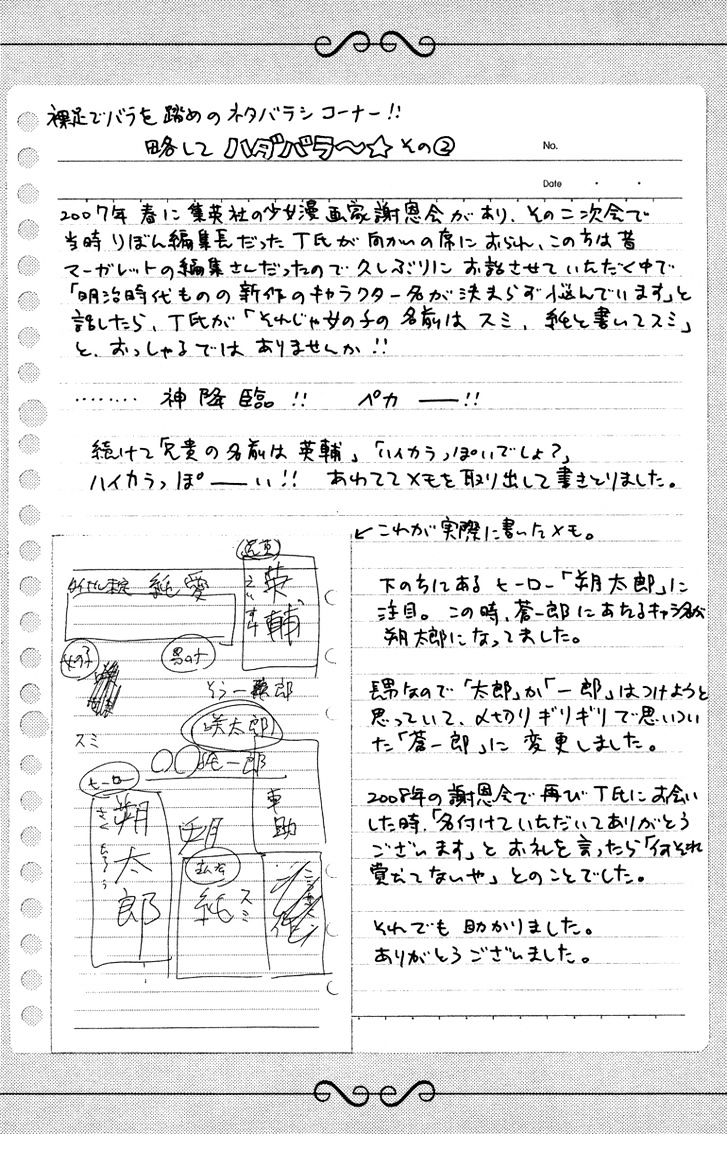 裸足でバラを踏めのネタバラシコーナー!!
略して ハダバラ〜☆ その②
No.
Date ・ ・
2007年 春に 集英社の少女漫画家謝恩会があり、その二次会で
当時りぼん編集長だったT氏が向かいの席におられ、この方は昔
マーガレットの編集さんだったので久しぶりにお話させていただく中で
「明治時代ものの新作のキャラクター名が決まらず悩んでいます」と
話したら、T氏が「それじゃ女の子の名前は スミ、純と書いてスミ」
と、おっしゃるではありませんか!!
‥‥‥‥ 神降臨!! ペカ ――!!
続けて「兄貴の名前は 英輔」「ハイカラっぽいでしょ?」
ハイカラっぽ――い!! あわててメモを取り出して書きとりました。
↙これが実際に書いたメモ。
下の方にあるヒーロー「朔太郎」に
注目。この時、蒼一郎にあたるキャラ名が
朔太郎になってました。
長男なので「太郎」か「一郎」はつけようと
思っていて、〆切りギリギリで思いつい
た「蒼一郎」に変更しました。
2008年の謝恩会で再びT氏にお会い
した時、「名付けていただいてありがとう
ございます」とお礼を言ったら「何それ
覚えてないや」とのことでした。
それでも助かりました。
ありがとうございました。
タイトル未定 純愛
兄貴
英輔
えいすけ
女の子
男の子
スミ
そう一郎
咲太郎
〇〇純一郎
ヒーロー
朔太郎
さくたろう
朔
車助
純
スミ